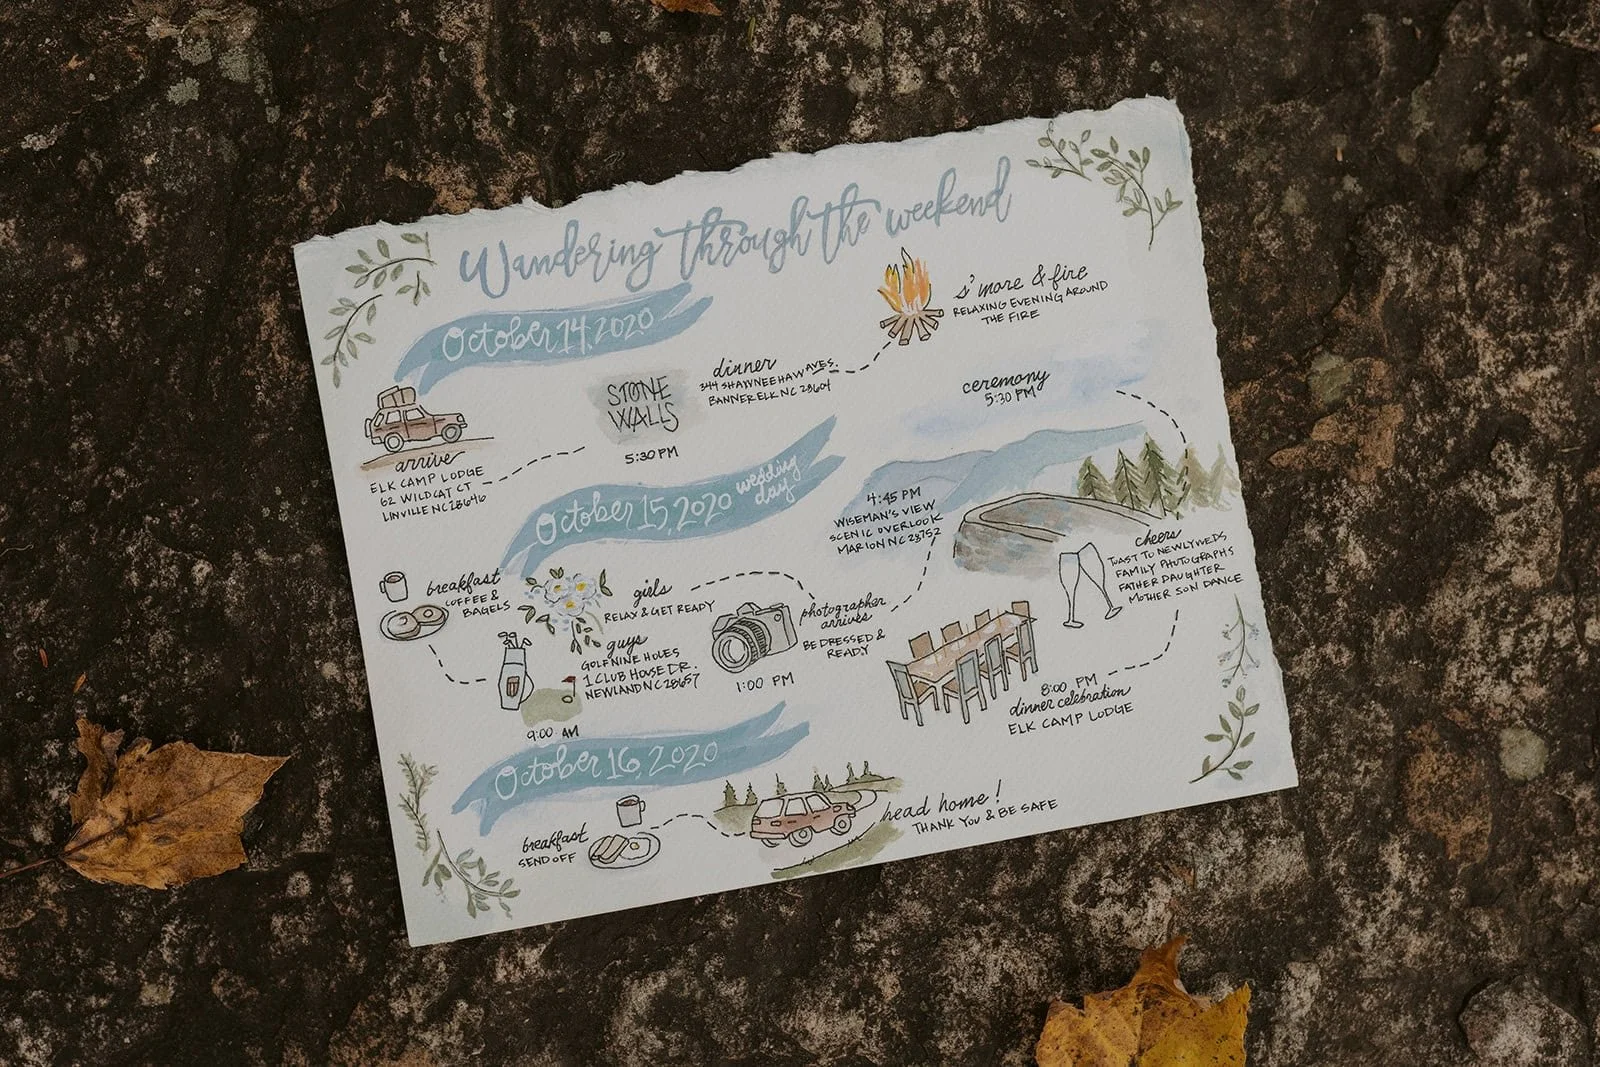 Wandering through the weekend
October 14, 2020
arrive
ELK CAMP LODGE
62 WILDCAT CT
LINVILLE NC 28646
STONE
WALLS
5:30 PM
dinner
344 SHAWNEEHAW AVE S.
BANNER ELK NC 28604
s'more & fire
RELAXING EVENING AROUND
THE FIRE
October 15, 2020 wedding
day
breakfast
COFFEE &
BAGELS
girls
RELAX & GET READY
guys
GOLF NINE HOLES
1 CLUB HOUSE DR.
NEWLAND NC 28657
9:00 AM
photographer
arrives
BE DRESSED &
READY
1:00 PM
4:45 PM
WISEMAN'S VIEW
SCENIC OVERLOOK
MARION NC 28752
ceremony
5:30 PM
cheers
TOAST TO NEWLYWEDS
FAMILY PHOTOGRAPHS
FATHER DAUGHTER
MOTHER SON DANCE
8:00 PM
dinner celebration
ELK CAMP LODGE
October 16, 2020
breakfast
SEND OFF
head home!
THANK YOU & BE SAFE